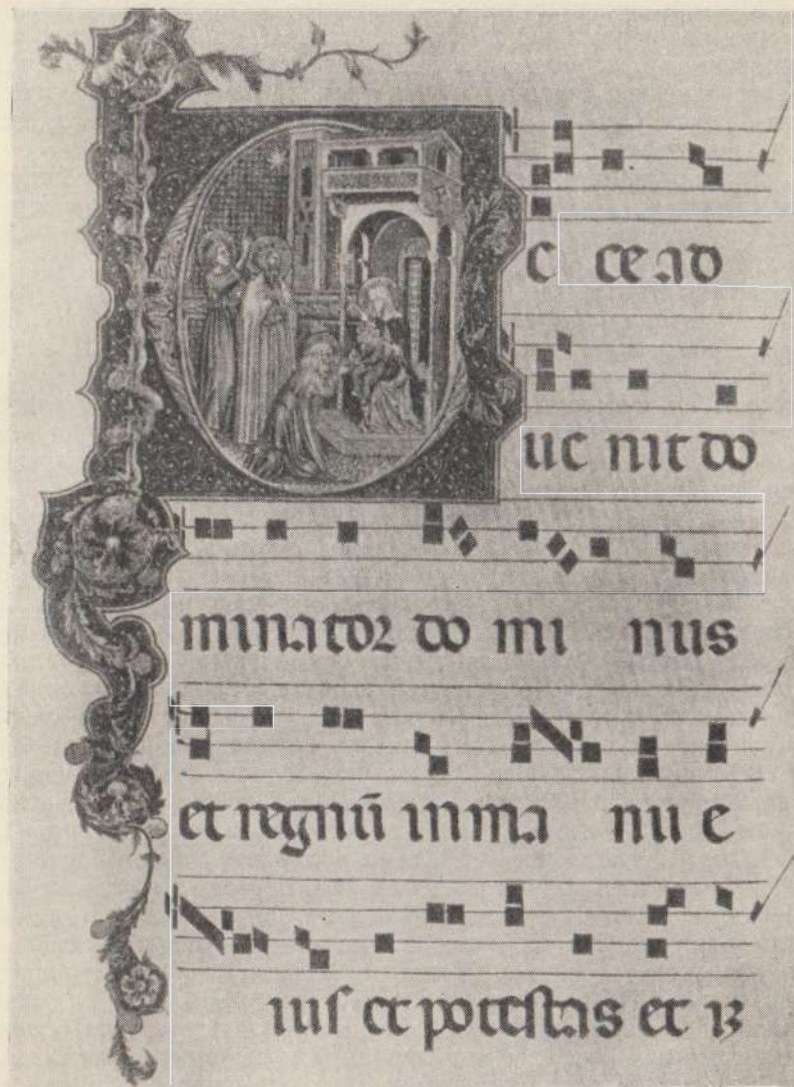 C ce ad
ue nit do
minator do mi nus
et regnū in ma nu e
ius et potestas et iz